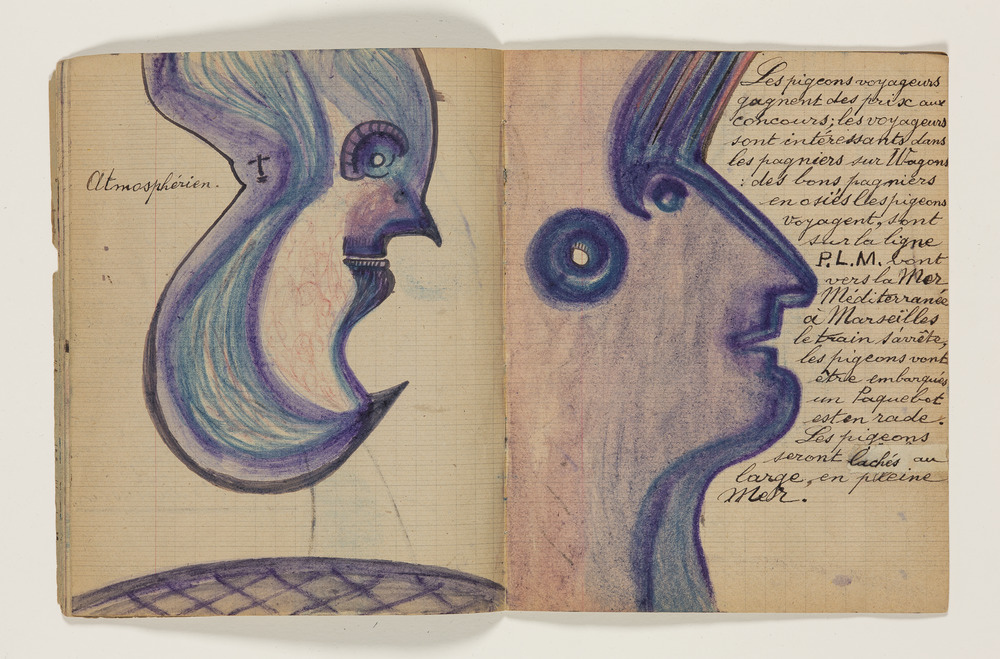 Atmosphérien.
Les pigeons voyageurs
gagnent des prix aux
concours; les voyageurs
sont intéressants dans
les pagniers sur Wagons
: des bons pagniers
en osiés les pigeons
voyagent, sont
sur la ligne
P.L.M. vont
vers la Mer
Méditerranée
à Marseilles
le train s'arrête,
les pigeons vont
être embarqués
un Paquebot
est en rade.
Les pigeons
seront lachés au
large, en pleine
Mer.